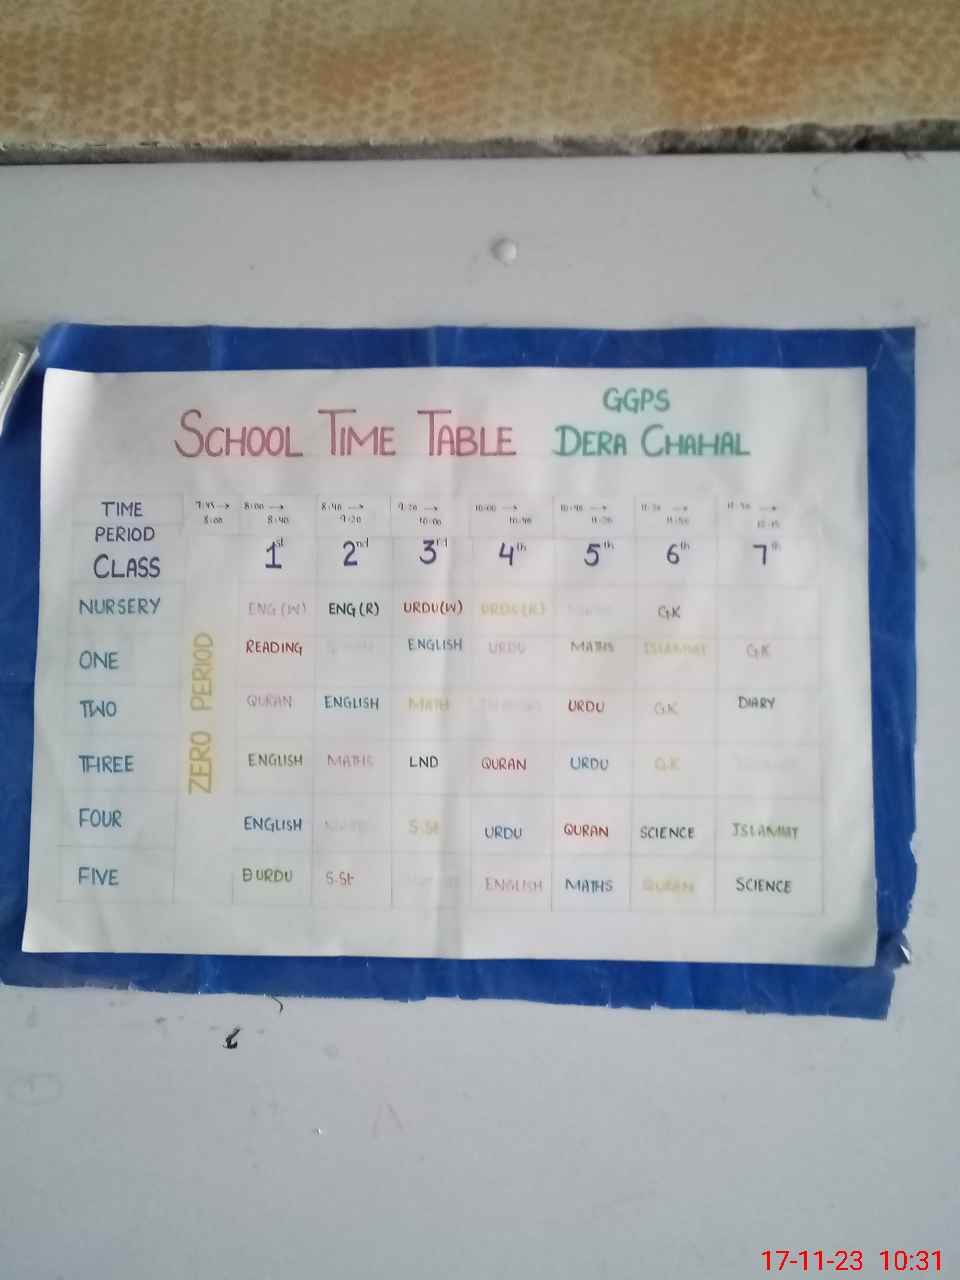 GGPS
SCHOOL TIME TABLE DERA CHAHAL
TIME 7:45→ 8:00 8:00→ 8:40 8:40→ 9:20 9:20→ 10:00 10:00→ 10:40 10:40→ 11:20
PERIOD
CLASS 1st 2nd 3rd 4th 5th 6th 7th
ZERO PERIOD
NURSERY ENG(W) ENG(R) URDU(W) URDU(R) GK
ONE READING ENGLISH URDU MATHS ISLAMIAT GK
TWO QURAN ENGLISH MATH URDU GK DIARY
THREE ENGLISH MATHS LND QURAN URDU GK
FOUR ENGLISH S.St URDU QURAN SCIENCE ISLAMIAT
FIVE URDU S.St ENGLISH MATHS QURAN SCIENCE
17-11-23 10:31